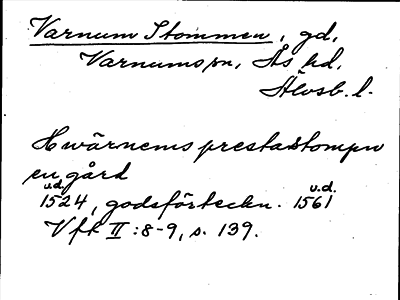 Varnum Stommen, gd,
Varnums sn, Ås hd,
Älvsb. l.
Hwärnems prestastompn
en gård
u.d. u.d.
1524, godsförteckn. 1561
Vfk II : 8-9, s. 139.